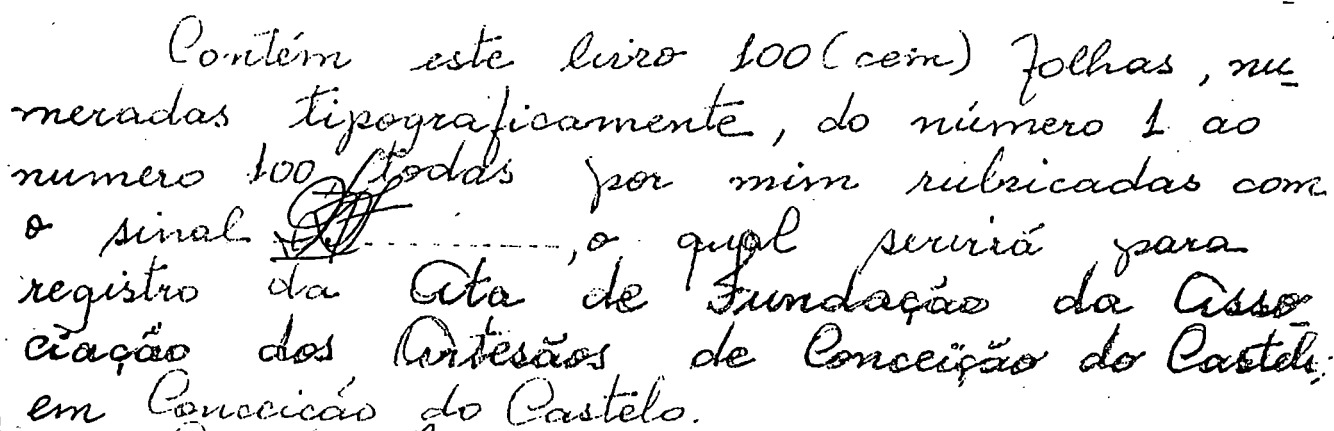 Contém este livro 100 (cem) folhas, nu_
meradas tipograficamente, do número 1 ao
numero 100, todas por mim rubricadas com
o sinal ............, o qual servirá para
registro da Ata de Fundação da Asso_
ciação dos Artesãos de Conceição do Castelo
em Conceição do Castelo.